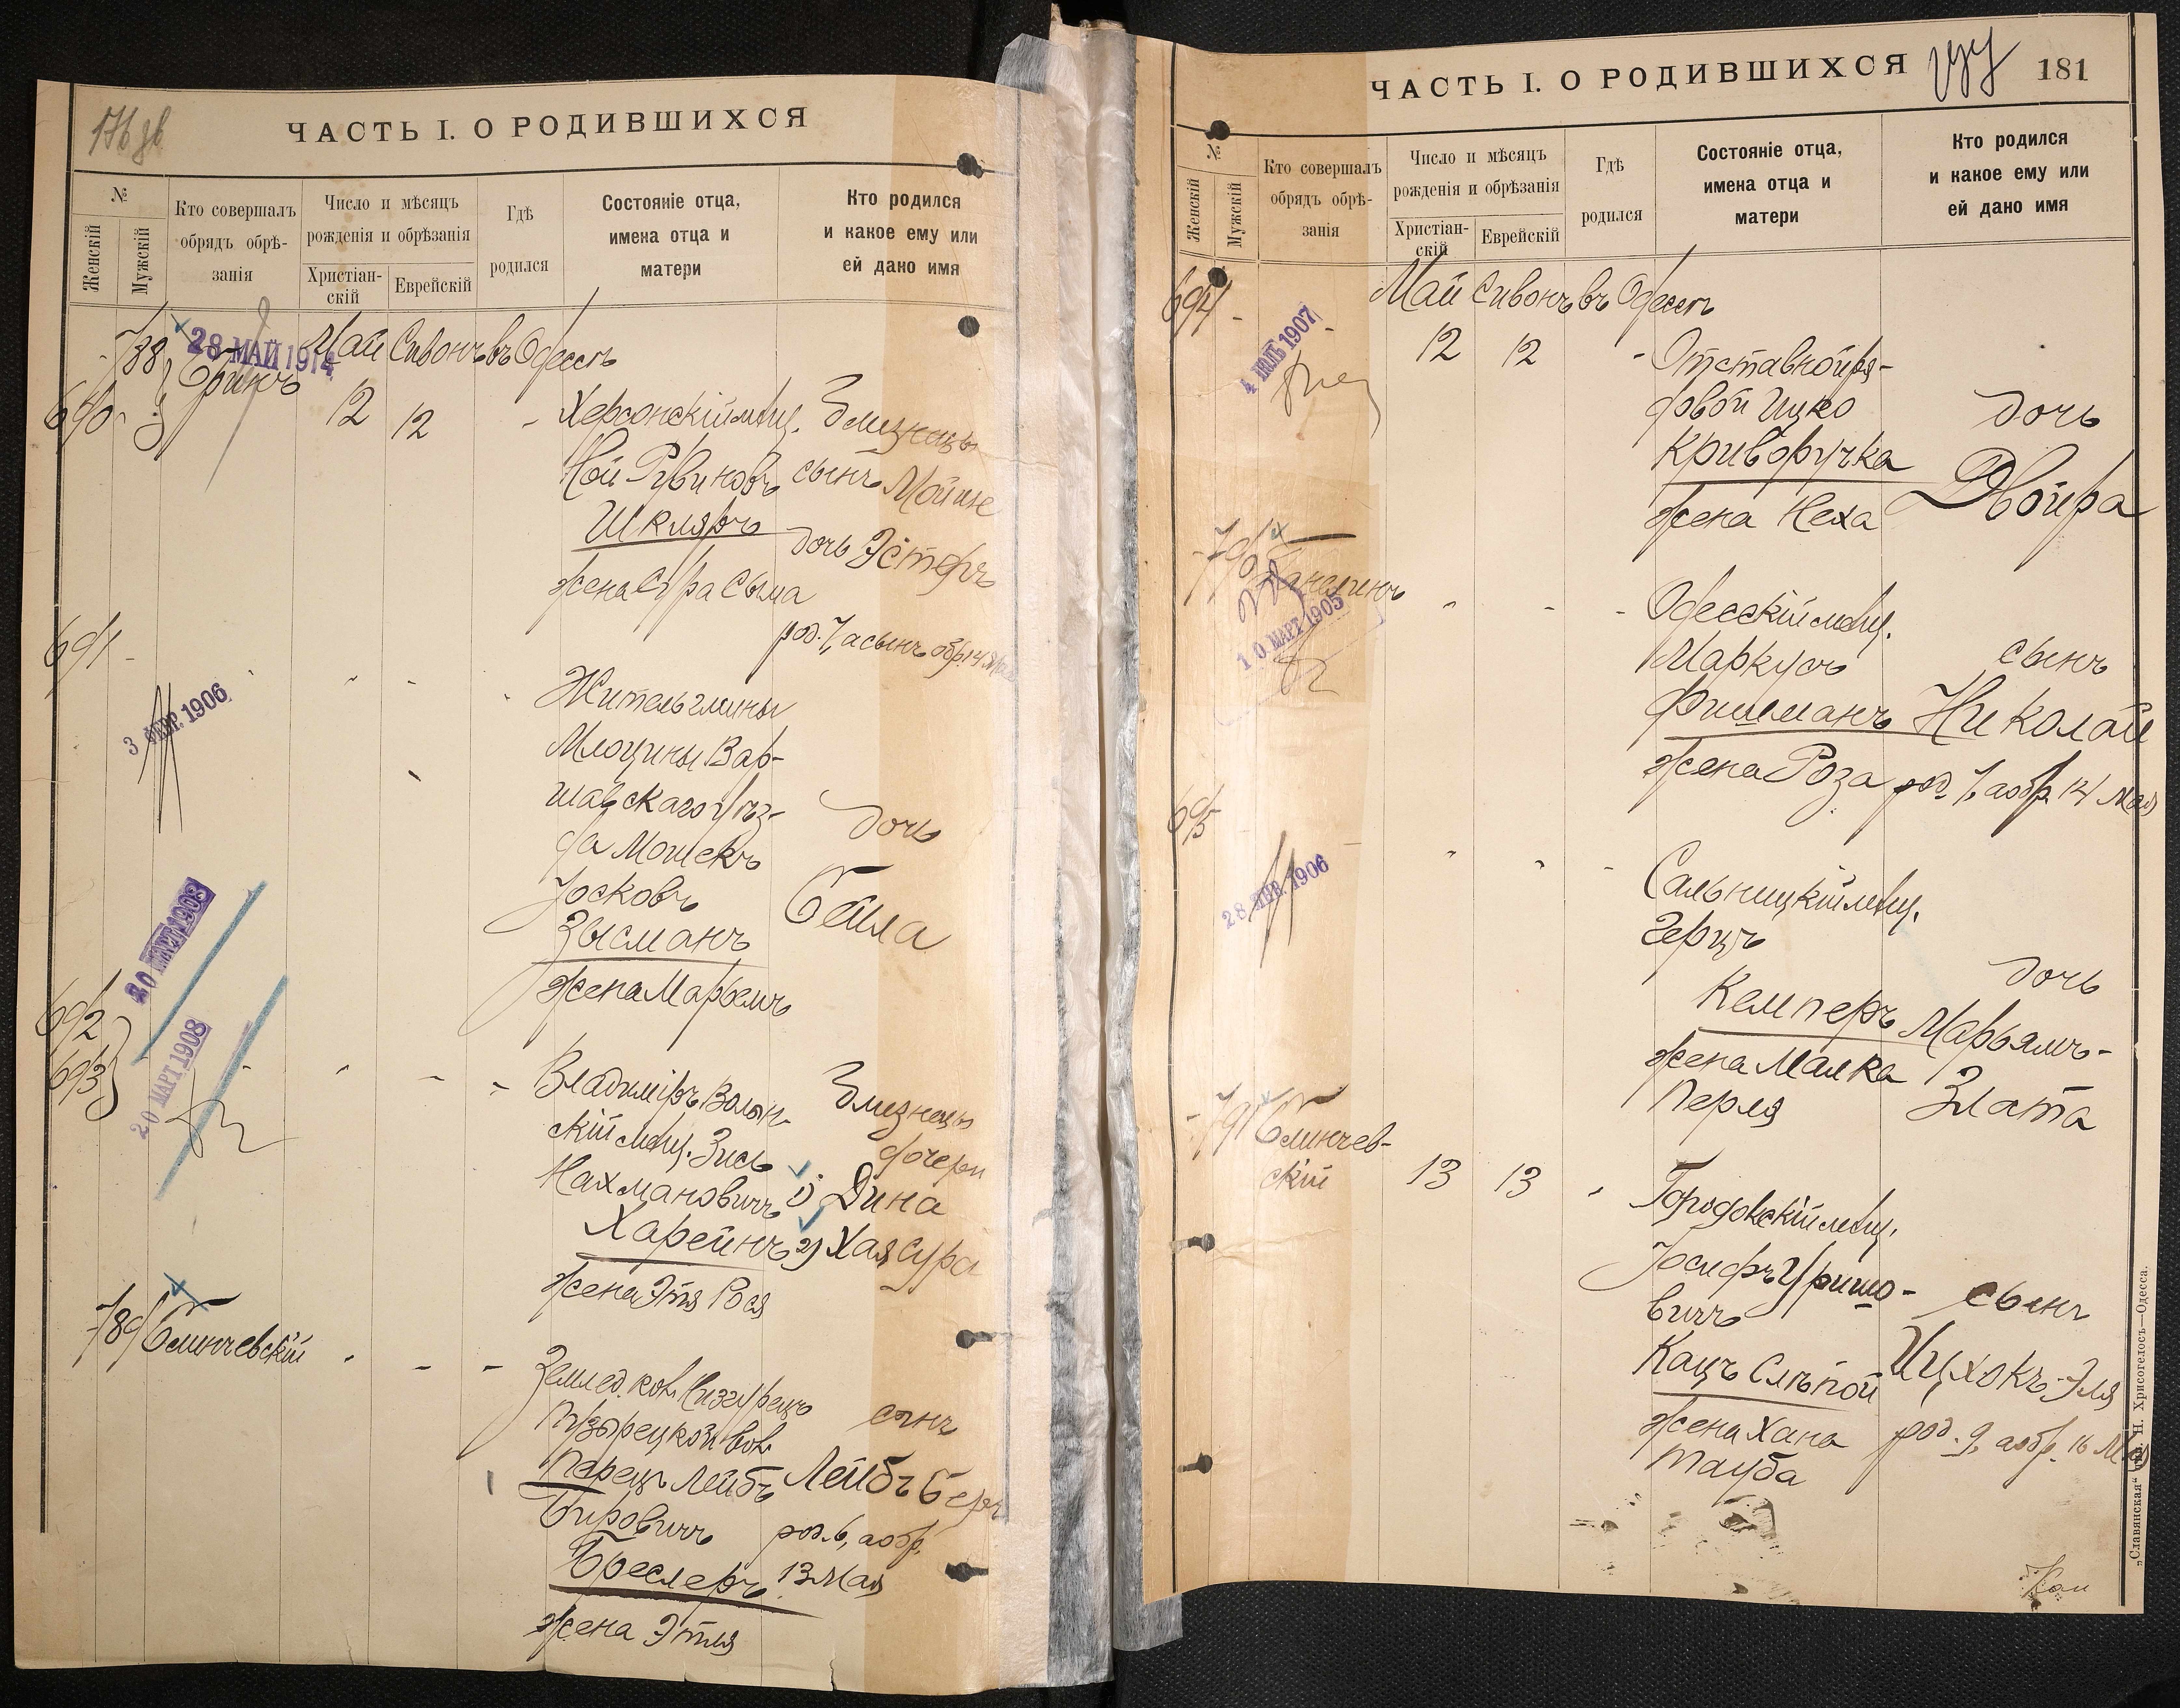 176 зв
ЧАСТЬ I. О РОДИВШИХСЯ
№
Женскій
Мужскій
Кто совершалъ
обрядъ обрѣ-
занія
Число и мѣсяцъ
рожденія и обрѣзанія
Христіан-
скій
Еврейскій
Гдѣ
родился
Состояніе отца,
имена отца и
матери
Кто родился
и какое ему или
ей дано имя
788
28 МАЙ 1914
Май Сивонъ въ Одессѣ
690
12 12
Херсонскій мѣщ. близнецы
Ной Рувиновъ сынъ Мойше
Шкляръ дочь Эстеръ
жена Сура Сыма
род. 7, а сынъ обр. 14 Мая
691
3 ФЕВР. 1906
Житель гмины
Млоцины Вар-
шавскаго уѣз-
да Мошекъ дочь
Іосковъ Бейла
Зысманъ
жена Марьемъ
20 МАРТ 1908
692
693
20 МАРТ 1908
Владиміръ Волын- близнецы
скій мѣщ. Зись дочери
Нахмановичъ 1) Дина
Харейнъ 2) Хая Сура
жена Этя Рося
789 Блинчевскій
Землед. кол.
сынъ
Лейбъ Лейбъ Беръ
Бировичъ род. 6, а обр.
Бреслеръ 13 Мая
жена Этля
ЧАСТЬ I. О РОДИВШИХСЯ
181
№
Женскій
Мужскій
Кто совершалъ
обрядъ обрѣ-
занія
Число и мѣсяцъ
рожденія и обрѣзанія
Христіан-
скій
Еврейскій
Гдѣ
родился
Состояніе отца,
имена отца и
матери
Кто родился
и какое ему или
ей дано имя
694
Май Сивонъ въ Одессѣ
4 ІЮЛЬ 1907
12 12
Отставной ря-
довой Ицко дочь
Криворучка Двойра
жена Неха
790
10 МАРТ 1905
Одесскій мѣщ.
Маркусъ сынъ
Фишманъ Николай
жена Роза род. 7, а обр. 14 Мая
695
28 ЯНВ. 1906
Сальницкій мѣщ.
Герцъ дочь
Кемперъ Марьямъ-
жена Малка Злата
Перля
791 Блинчев-
скій
13 13
Городокскій мѣщ.
Іосифъ Уришо- сынъ
вичъ
Кацъ Слѣпой Ицхокъ-Эля
жена Хана род. 9, а обр. 16 Мая
Тауба
„Славянская“ тип. Н. Хрисогелосъ—Одесса.